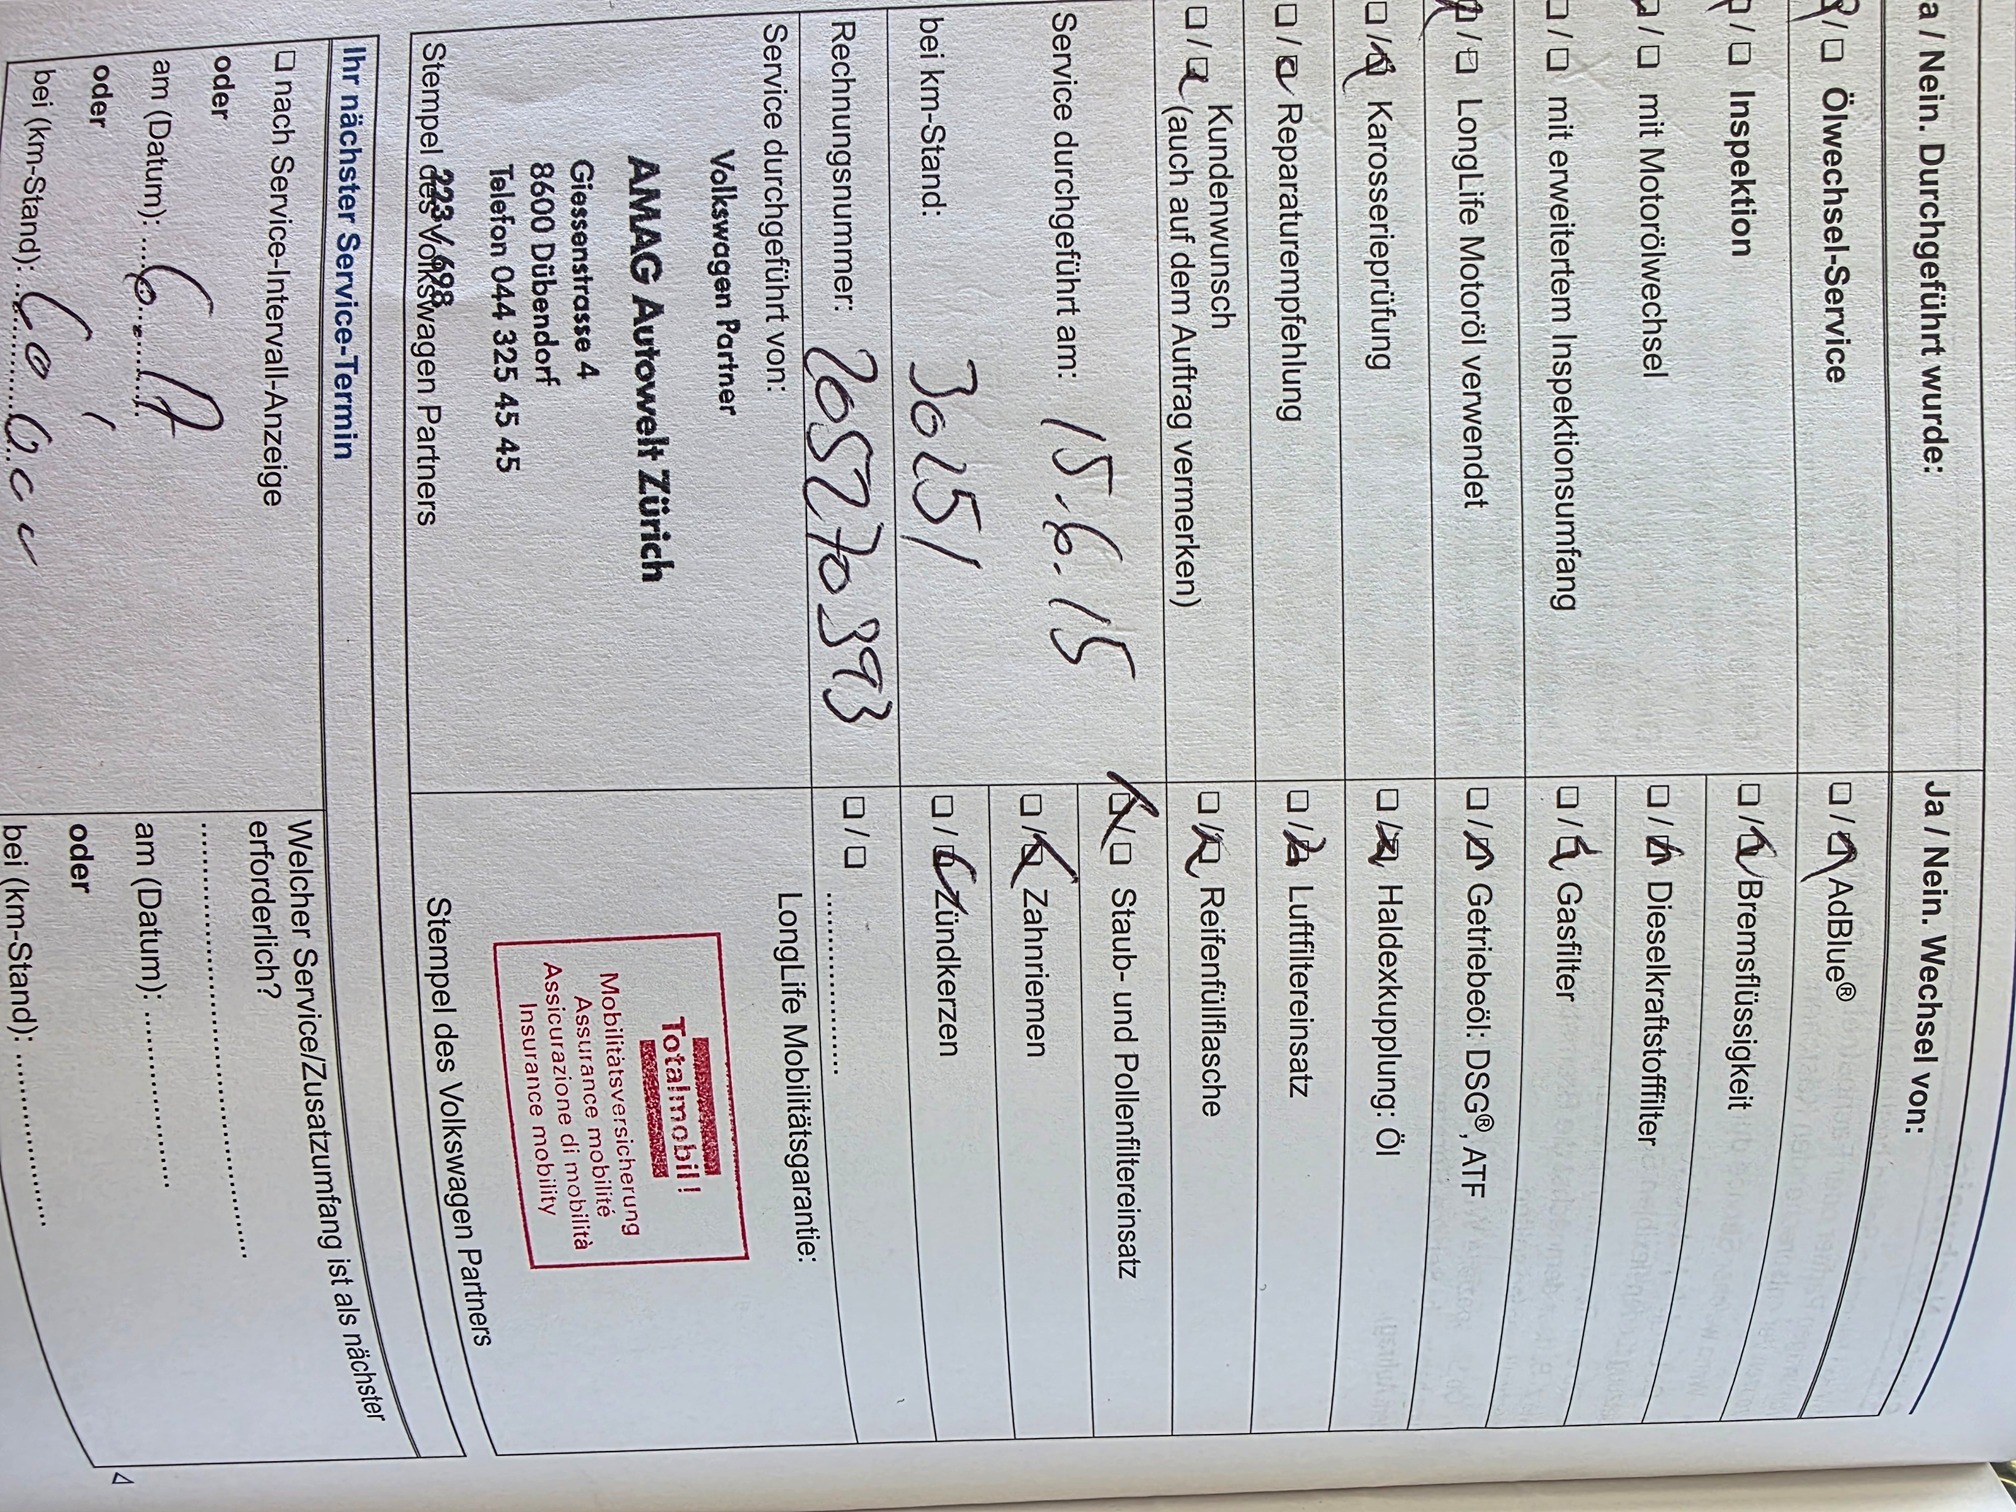 a / Nein. Durchgeführt wurde:
/ ☐ Ölwechsel-Service
/ ☐ Inspektion
/ ☐ mit Motorölwechsel
☐ / ☐ mit erweitertem Inspektionsumfang
/ ☐ LongLife Motoröl verwendet
☐ / Karosserieprüfung
☐ / Reparaturempfehlung
☐ / Kundenwunsch
(auch auf dem Auftrag vermerken)
Service durchgeführt am: 15.6.15
bei km-Stand: 30251
Rechnungsnummer: 205270393
Service durchgeführt von:
Volkswagen Partner
AMAG Autowelt Zürich
Giessenstrasse 4
8600 Dübendorf
Telefon 044 325 45 45
223 / 698
Stempel des Volkswagen Partners
Ja / Nein. Wechsel von:
☐ / AdBlue®
☐ / Bremsflüssigkeit
☐ / Dieselkraftstofffilter
☐ / Gasfilter
☐ / Getriebeöl: DSG®, ATF
☐ / Haldexkupplung: Öl
☐ / Luftfiltereinsatz
☐ / Reifenfüllflasche
/ ☐ Staub- und Pollenfiltereinsatz
☐ / Zahnriemen
☐ / Zündkerzen
☐ / ☐ ....................
LongLife Mobilitätsgarantie:
Totalmobil!
Mobilitätsversicherung
Assurance mobilité
Assicurazione di mobilità
Insurance mobility
Stempel des Volkswagen Partners
Ihr nächster Service-Termin
☐ nach Service-Intervall-Anzeige
oder
am (Datum): 6.17
oder
bei (km-Stand): 60'000
Welcher Service/Zusatzumfang ist als nächster
erforderlich?
..................................................
am (Datum): ....................
oder
bei (km-Stand): ....................
4